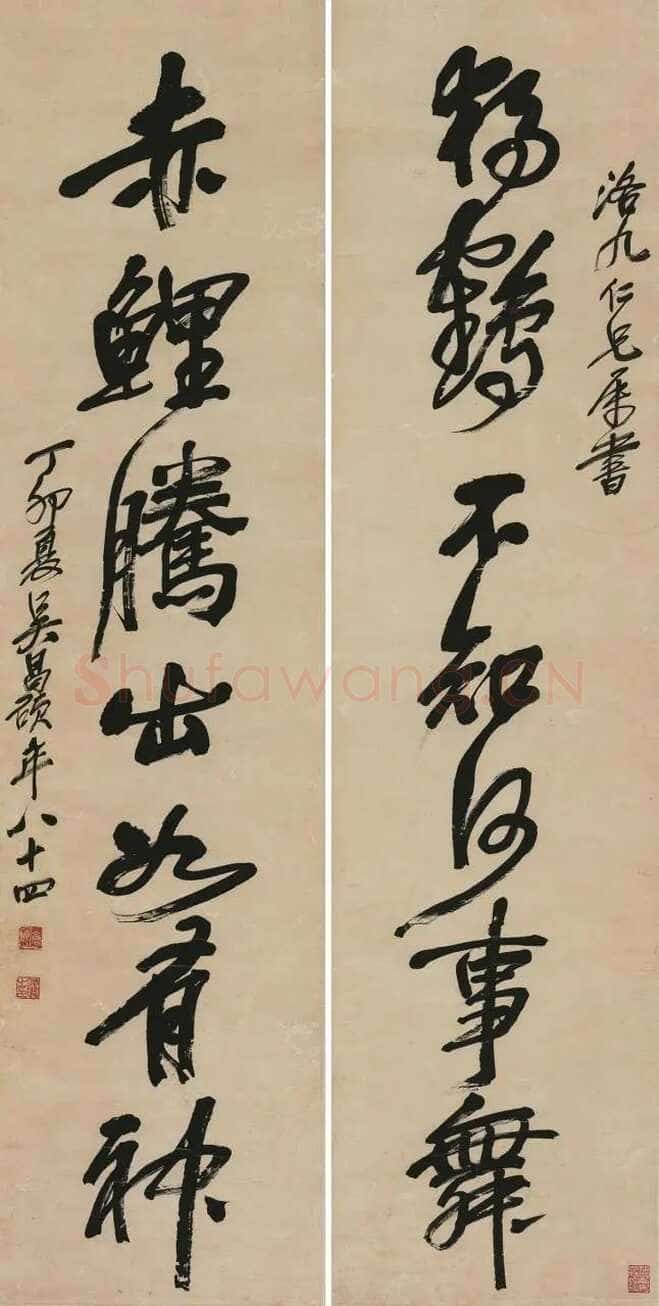 洛九仁兄属書
獨鶴不知何事舞
赤鯉騰出如有神
丁卯夏吳昌碩年八十四
Shufawang.CN